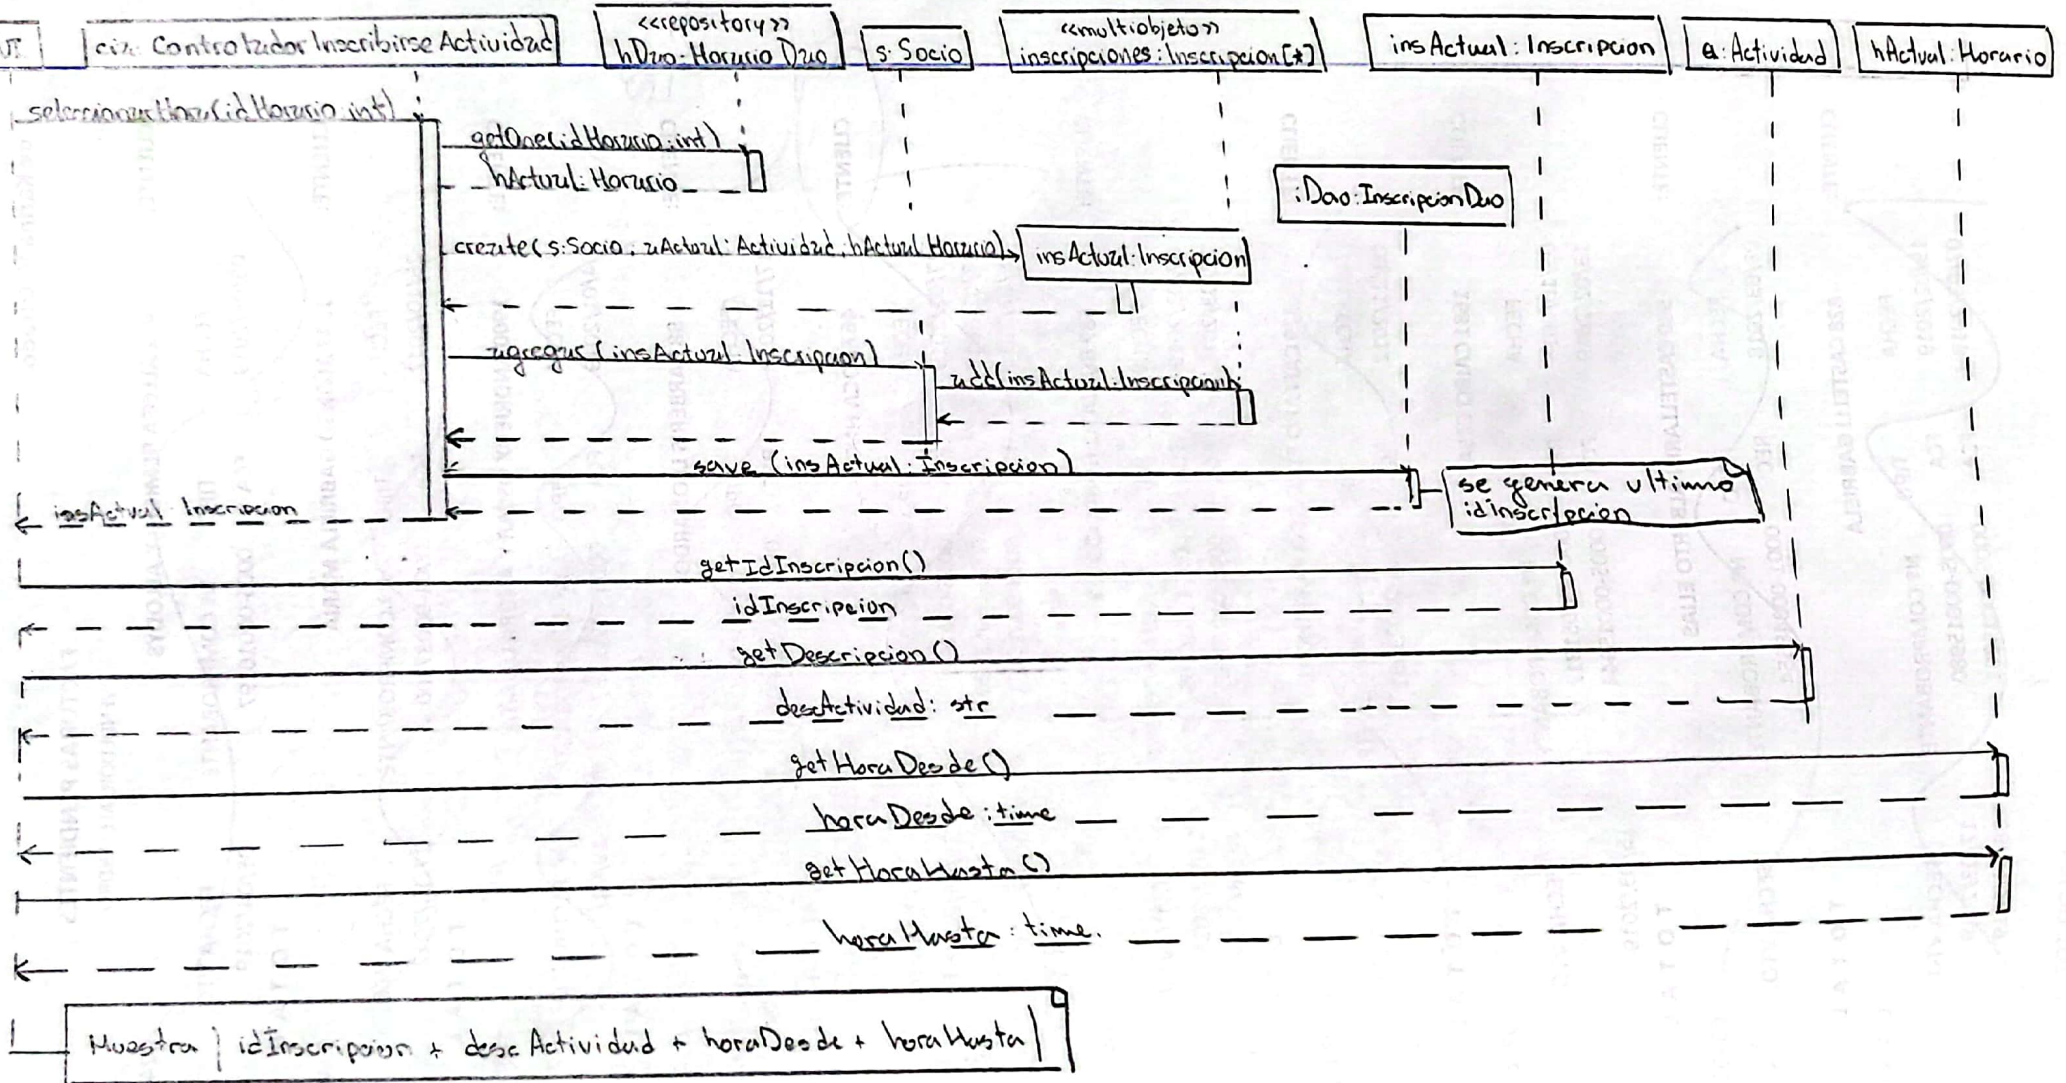 UI
cia: Controlador Inscribirse Actividad
<<repository>>
hDao: Horario Dao
s: Socio
<<multiobjeto>>
inscripciones: Inscripcion[*]
insActual: Inscripcion
a: Actividad
hActual: Horario
(idHorario: int)
getOne(idHorario: int)
hActual: Horario
iDao: InscripcionDao
create(s: Socio, aActual: Actividad, hActual: Horario)
insActual: Inscripcion
agregar (insActual: Inscripcion)
add(insActual: Inscripcion)
save (insActual: Inscripcion)
se genera ultimo
idinscripcion
insActual: Inscripcion
getIdInscripcion()
idInscripcion
getDescripcion()
descActividad: str
getHoraDesde()
horaDesde: time
getHoraHasta()
horaHasta: time.
Muestra | idInscripcion + descActividad + horaDesde + horaHasta |